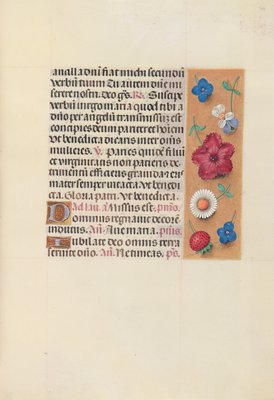 ancilla dñi fiat michi secundũ
verbũ tuum Tu autem dñe mi
serere nostri. deo grãs. R. Suscipe
verbũ virgo maria quod tibi a
dño per angelũ transmissũ est
concipies deum paries et
ut benedicta dicaris inter oĩes
mulieres. V. Paries quidẽ filiũ
et virginitatis non patieris de
trimentũ efficieris gravida et eris
mater semper intacta. ut bene
dicta. Gloria patri. ut benedicta.
Ad lau. añ Missus est. psmus.
Dominus regnavit decorẽ
indutus. Añ. Ave maria. psmus.
Iubilate deo omnis terra
servite dño. Añ. Ne timeas. ps.